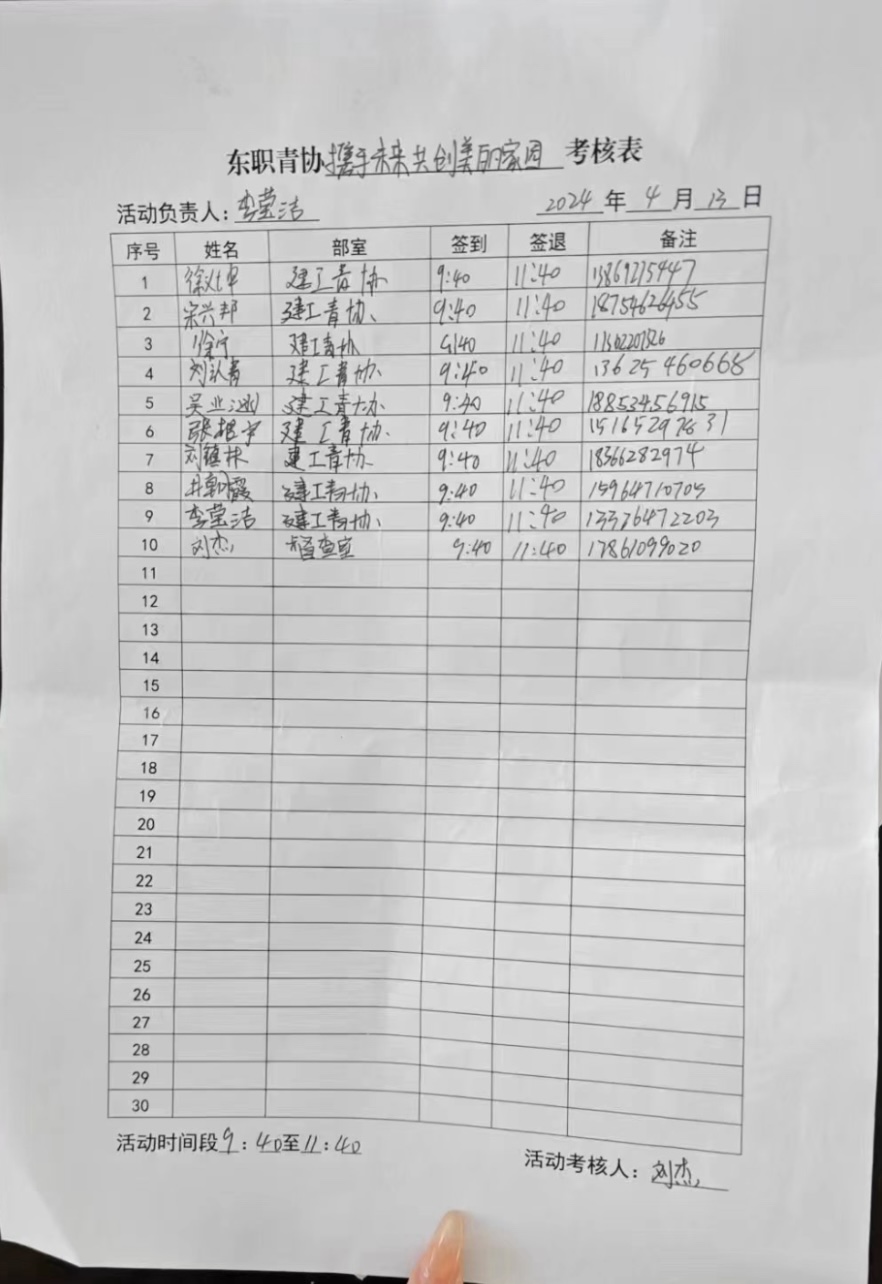 东职青协携手未来共创美丽家园考核表
活动负责人：李莹洁 2024年4月13日
序号 姓名 部室 签到 签退 备注
1 建工青协 9:40 11:40 13869215447
2 宋兴邦 建工青协、 9:40 11:40 18754626455
3 徐宁 建工青协 9:40 11:40
4 建工青协、 9:40 11:40 13625460668
5 建工青协、 9:40 11:40 18852456915
6 张 建工青协、 9:40 11:40
7 刘镇林 建工青协、 9:40 11:40 18366282974
8 建工青协、 9:40 11:40 15964710705
9 李莹洁 建工青协、 9:40 11:40 13376472203
10 刘杰 督查室 9:40 11:40 17861099020
11
12
13
14
15
16
17
18
19
20
21
22
23
24
25
26
27
28
29
30
活动时间段9：40至11：40
活动考核人：刘杰